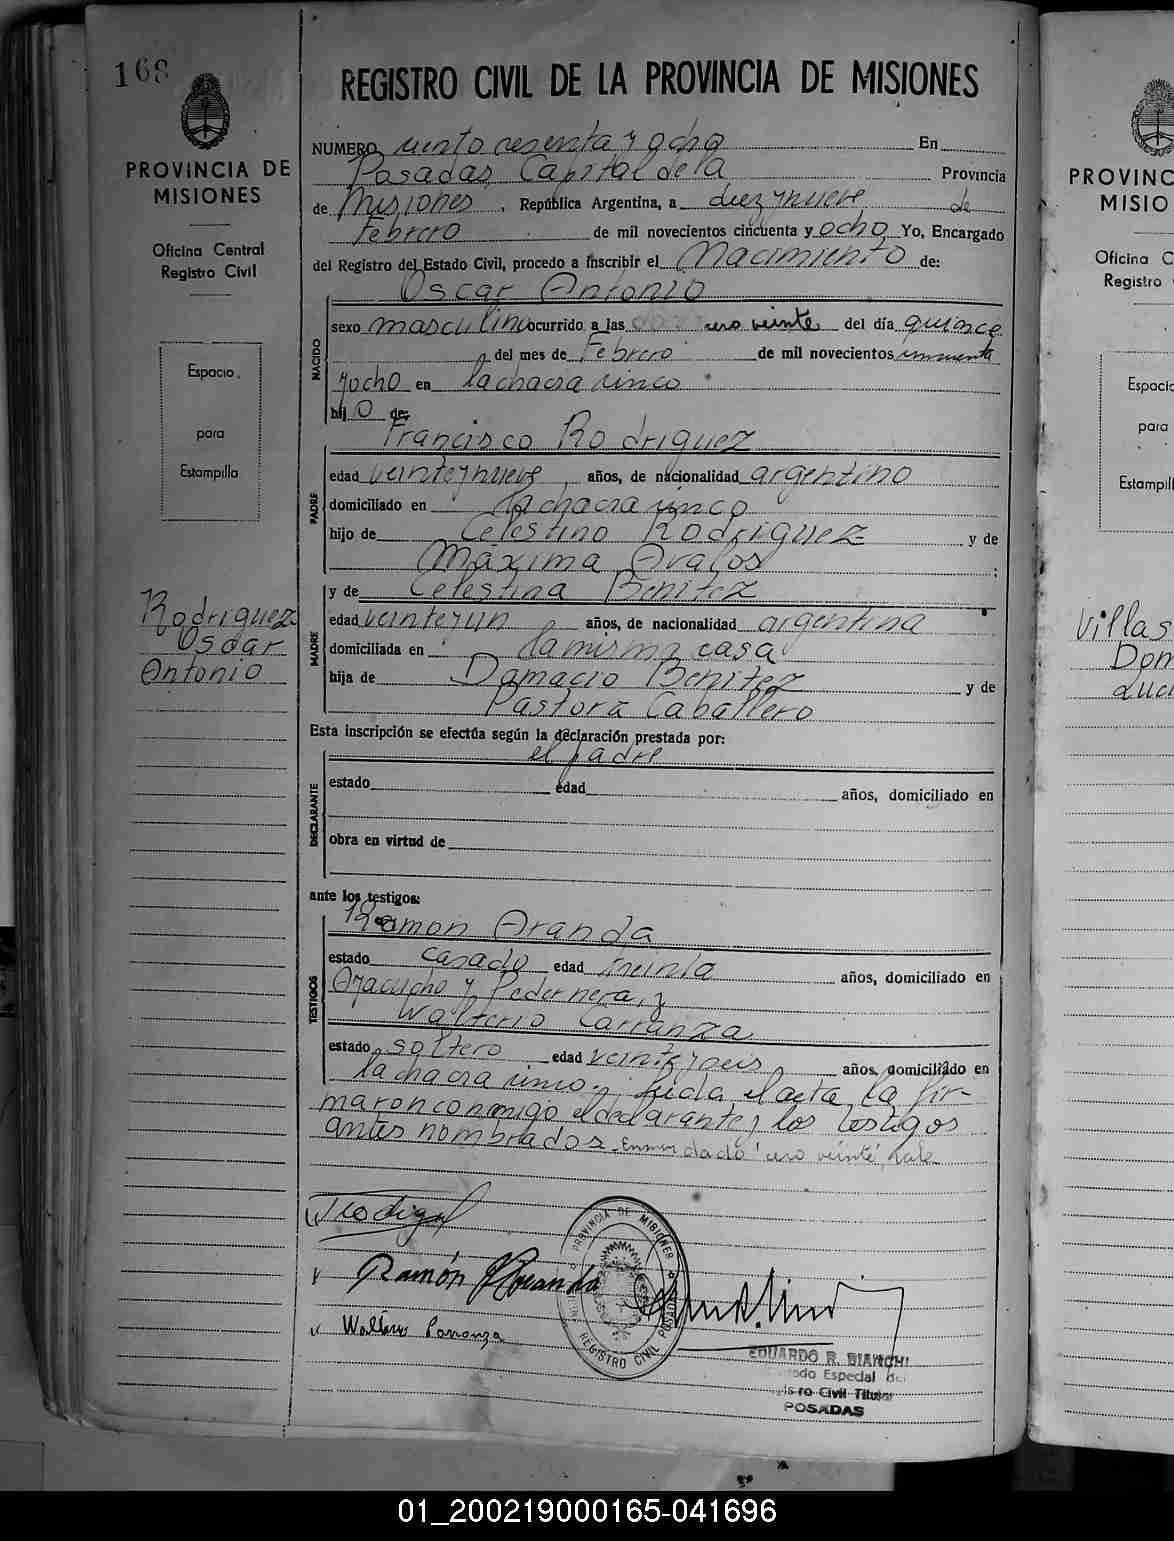 168
PROVINCIA DE
MISIONES
Oficina Central
Registro Civil
Espacio
para
Estampilla
Rodriguez
Oscar
Antonio
REGISTRO CIVIL DE LA PROVINCIA DE MISIONES
NUMERO ciento cesenta y ocho En
Posadas, Capital de la Provincia
de Misiones, República Argentina, a diez y nueve de
Febrero de mil novecientos cincuenta y ocho Yo, Encargado
del Registro del Estado Civil, procedo a inscribir el Nacimiento de:
NACIDO
Oscar Antonio
sexo masculino ocurrido a las cero veinte del día quince
del mes de Febrero de mil novecientos cincuenta
y ocho en la chacra cinco
hijo de:
PADRE
Francisco Rodriguez
edad veinte y nueve años, de nacionalidad argentino
domiciliado en la chacra cinco
hijo de Celestino Rodriguez y de
Máxima Avalos ;
MADRE
y de Celestina Benitez
edad veinte y un años, de nacionalidad argentina
domiciliada en la misma casa
hija de Damacio Benitez y de
Pastora Caballero
Esta inscripción se efectúa según la declaración prestada por:
DECLARANTE
el padre
estado edad años, domiciliado en
obra en virtud de
ante los testigos:
TESTIGOS
Ramon Aranda
estado casado edad treinta años, domiciliado en
Ayacucho y Pedernera, y
Walterio Carranza
estado soltero edad veinte y seis años, domiciliado en
la chacra cinco, leida el acta, la fir-
maron conmigo el declarante y los testigos
antes nombrados. Enmendado "cero veinte", vale
Ramón Aranda
Carranza
PROVINCIA DE MISIONES
REGISTRO CIVIL POSADAS
EDUARDO R. BIANCHI
Especial del
Civil Titular
POSADAS
PROVINC
MISIO
Oficina C
Registro
Espacio
para
Estampill
Villas
Dom
Luci
01_200219000165-041696